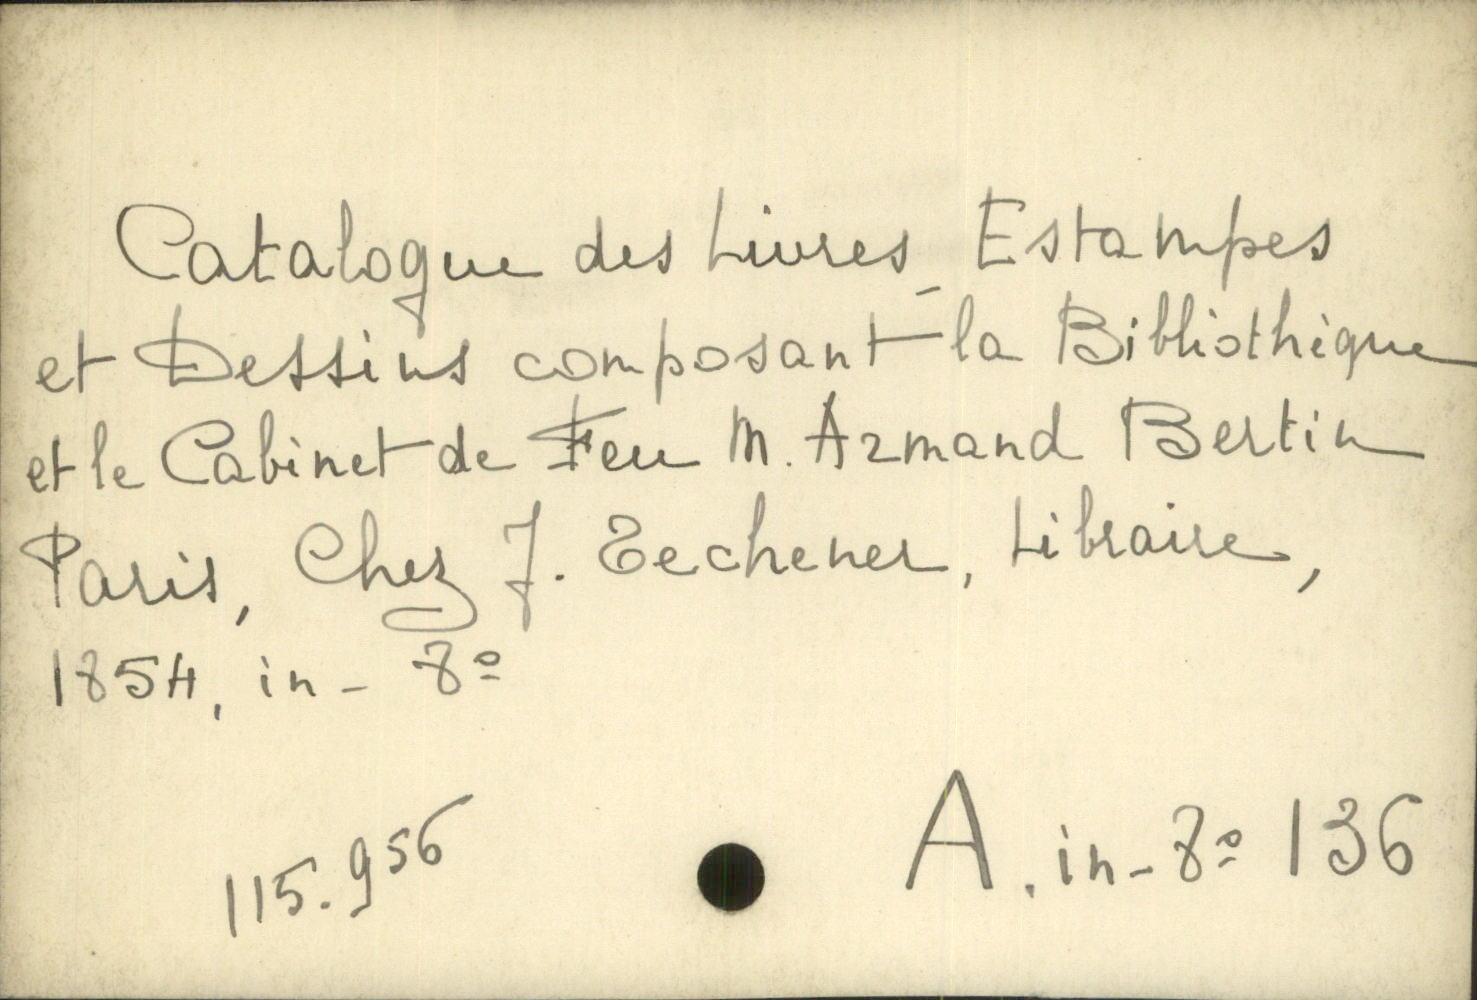 Catalogue des Livres_ Estampes
et Dessins composant la Bibliothèque
et le Cabinet de Feu M. Armand Bertin
Paris, Chez J. Techener, Libraire,
1854, in-8º
115.956
A. in-8º 136